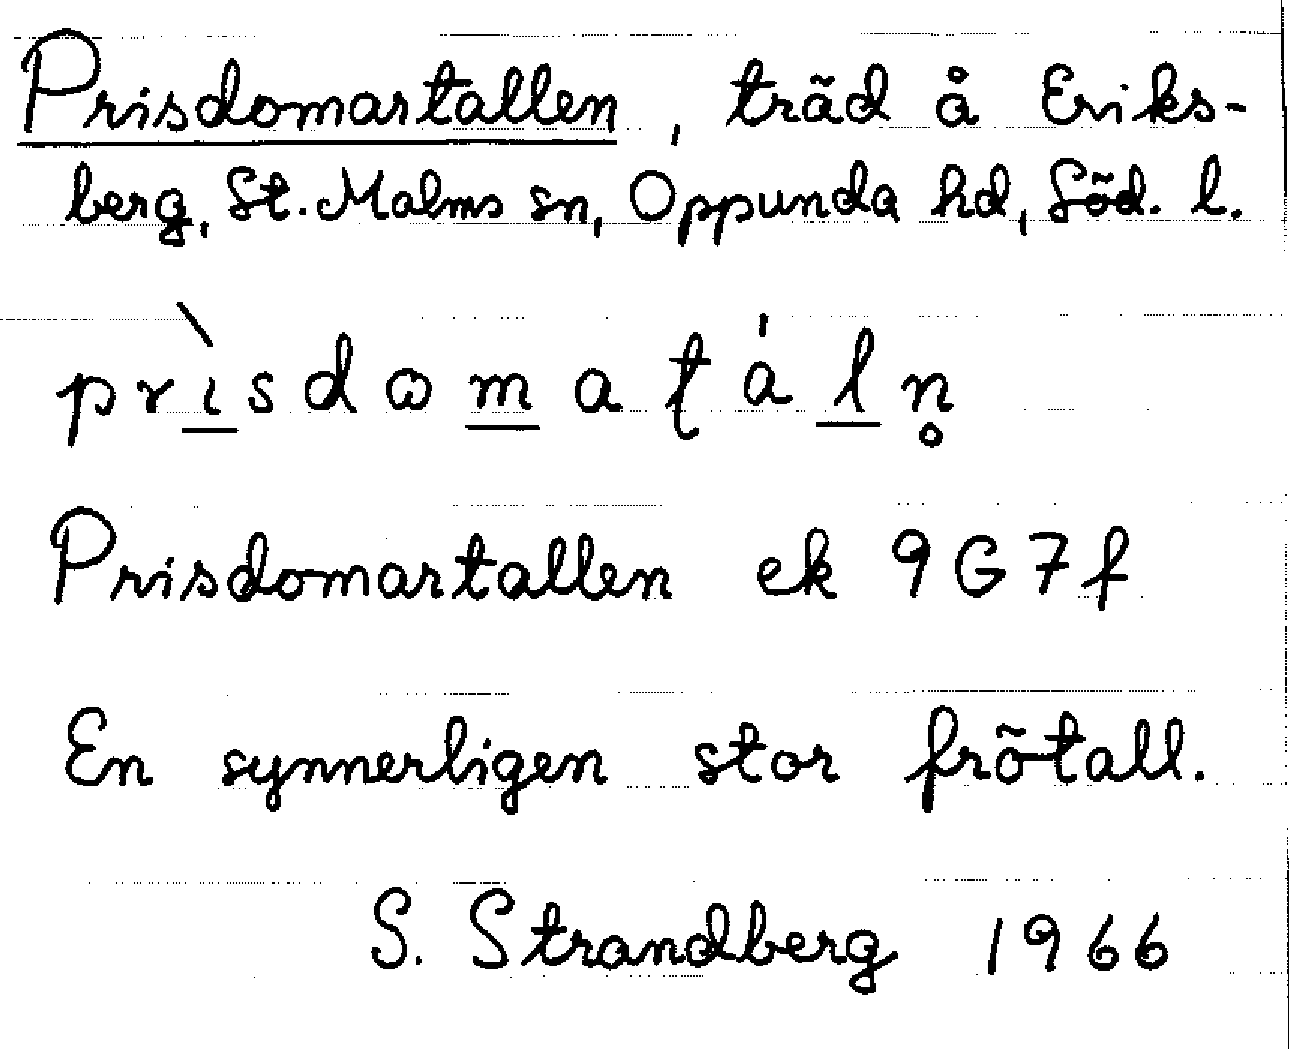 Prisdomartallen, träd å Eriks-
berg, St. Malms sn, Oppunda hd, Söd. l.
prìsdωmaʈáln̥
Prisdomartallen ek 9G7f
En synnerligen stor frötall.
S. Strandberg 1966